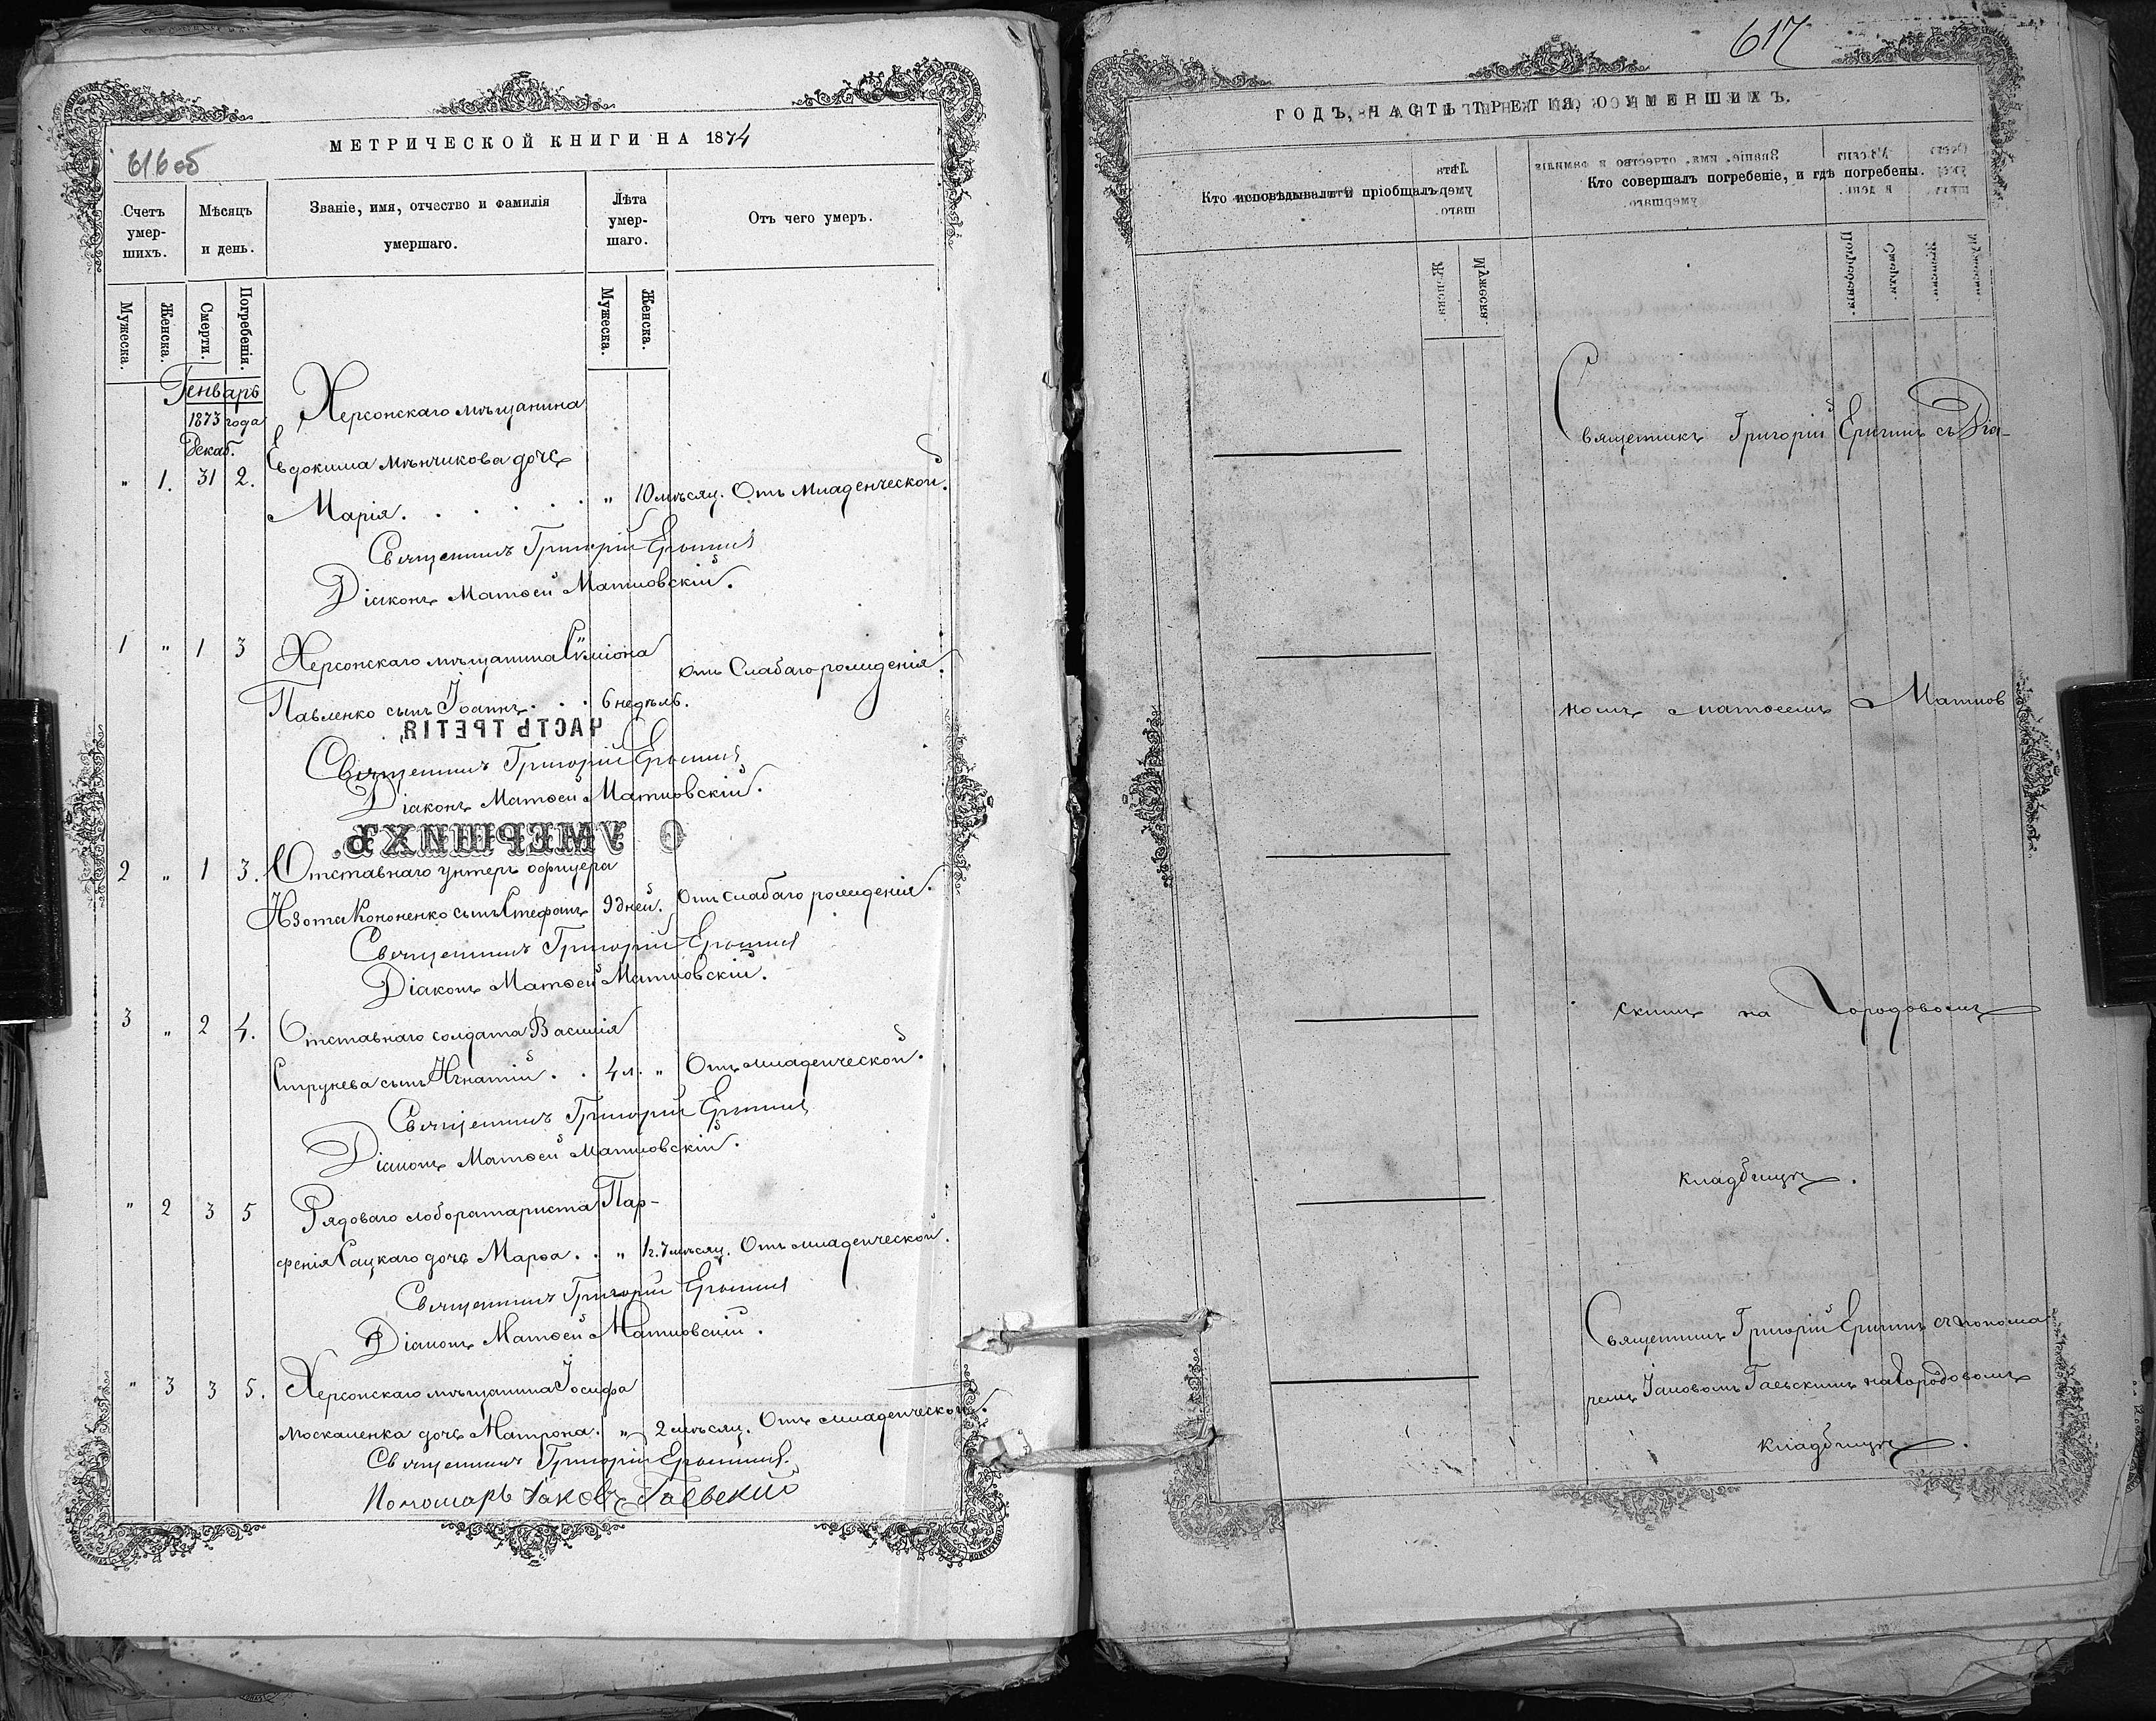 616 об
МЕТРИЧЕСКОЙ КНИГИ НА 1874
Счетъ умер- шихъ.
Мѣсяцъ и день.
Званіе, имя, отчество и фамилія умершаго.
Лѣта умер- шаго.
Отъ чего умеръ.
Мужеска.
Женска.
Смерти.
Погребенія.
Мужеска.
Женска.
Генварь
1873 года
Декаб.
Херсонскаго мѣщанина
Евдокима Мѣнчикова дочь
„ 1. 31 2. Марія . . . . . „ 10 мѣсяц. Отъ младенческой.
Священникъ Григорій
Діаконъ Матѳей
1 „ 1 3 Херсонскаго мѣщанина Сѵмеона
Павленко сынъ Іоаннъ . . 6 недѣль. Отъ слабаго рожденія.
ЧАСТЬ ТРЕТІЯ,
Священникъ Григорій
Діаконъ Матѳей
О УМЕРШИХЪ.
2 „ 1 3. Отставнаго унтеръ офицера
Изота Кононенко сынъ Стефанъ 9 дней. Отъ слабаго рожденія.
Священникъ Григорій
Діаконъ Матѳей
3 „ 2 4. Отставнаго солдата Василія
сынъ Игнатій . . 4 л. „ Отъ младенческой.
Священникъ Григорій
Діаконъ Матѳей
„ 2 3 5 Рядоваго лоборатариста Пар-
фенія Сацкаго дочь Марѳа . . „ 1 г. 7 мѣсяц. Отъ младенческой.
Священникъ Григорій
Діаконъ Матѳей
„ 3 3 5. Херсонскаго мѣщанина Іосифа
Москаленка дочь Матрона. „ 2 мѣсяц. Отъ младенческой.
Священникъ Григорій
Пономарь Іаковъ Гаевскій
617
ГОДЪ, ЧАСТЬ ТРЕТІЯ, О УМЕРШИХЪ.
Кто исповѣдывалъ и пріобщалъ.
Кто совершалъ погребеніе, и гдѣ погребены.
Священникъ Григорій съ Діа-
кономъ Матѳеемъ
скимъ на Городовомъ
кладбищѣ.
Священникъ Григорій съ понома
ремъ Іаковомъ Гаевскимъ на Городовомъ
кладбищѣ.